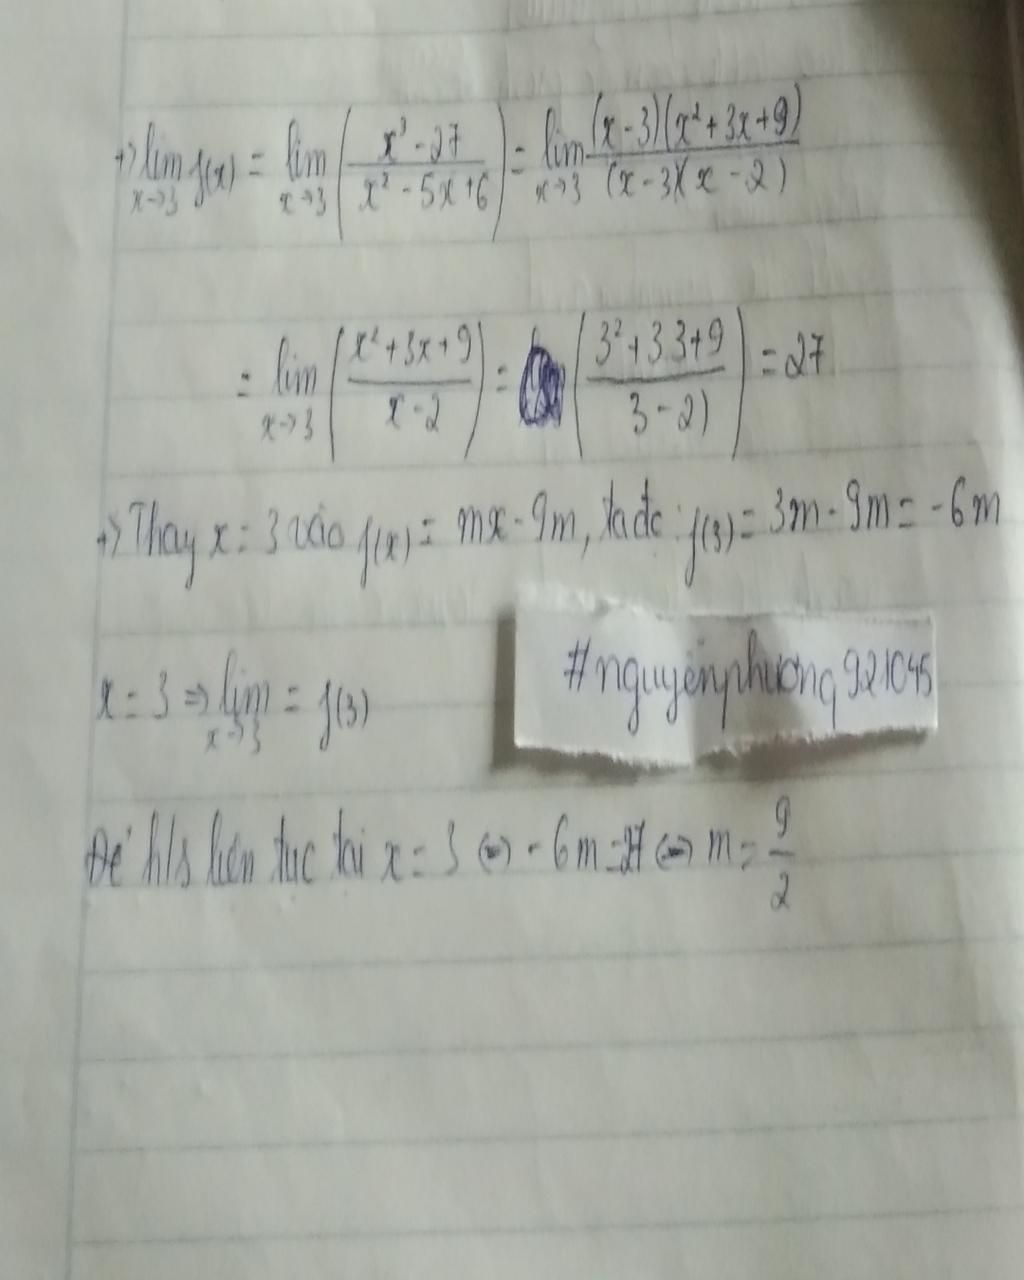 +) lim x→3 f(x) = lim x→3 ( x³ - 27 / x² - 5x + 6 ) = lim x→3 (x - 3)(x² + 3x + 9) / (x - 3)(x - 2)
= lim x→3 ( x² + 3x + 9 / x - 2 ) = ( 3² + 3.3 + 9 / 3 - 2) ) = 27
+) Thay x = 3 vào f(x) = mx - 9m, ta đc : f(3) = 3m - 9m = -6m
x = 3 ⇒ lim x→3 = f(3)
#nguyenphuong921045
Để h/s liên tục tại x = 3 ⇔ - 6m = 27 ⇔ m = 9/2